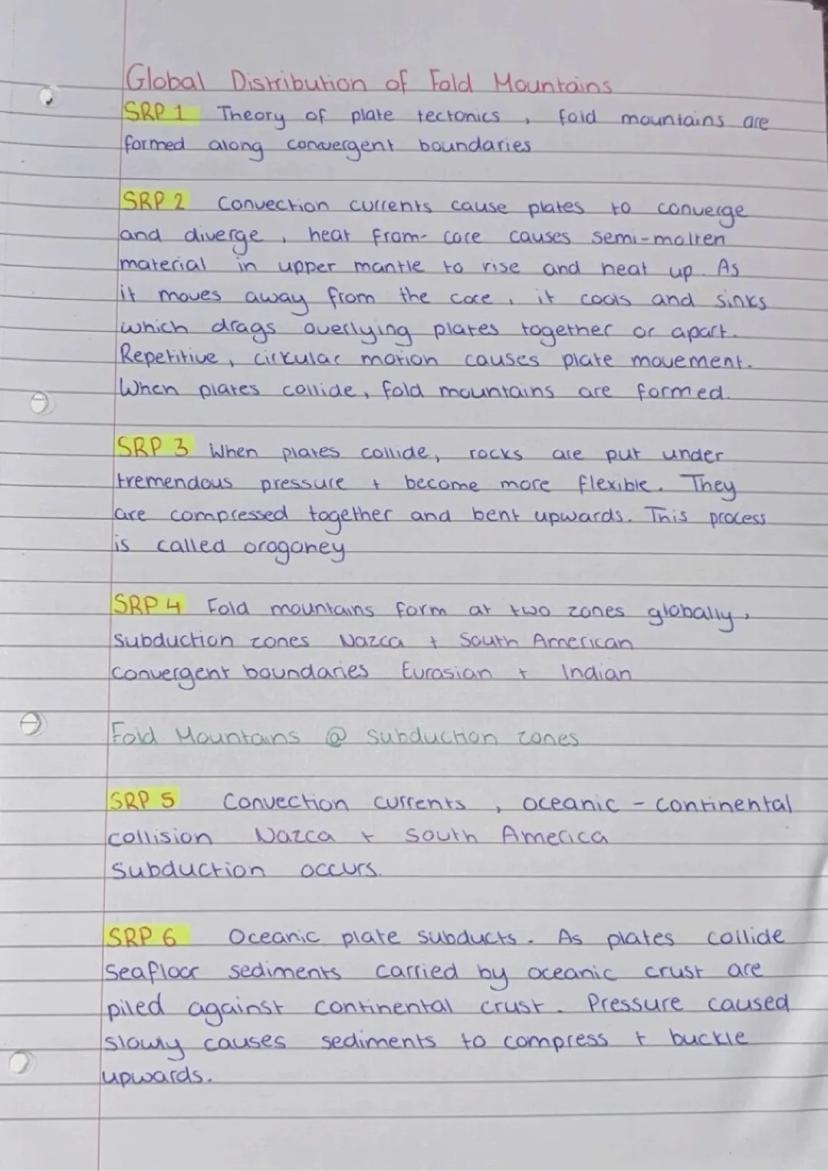 Global Distribution of Fold Mountains
SRP 1 Theory of plate tectonics, fold mountains are
formed along convergent boundaries
SRP 2 Convection currents cause plates to converge
and diverge, heat from core causes semi-molten
material in upper mantle to rise and heat up. As
it moves away from the core, it cools and sinks
which drags overlying plates together or apart.
Repetitive, cirkular motion causes plate movement.
When plates collide, fold mountains are formed.
SRP 3 When plates collide, rocks are put under
tremendous pressure + become more flexible. They
are compressed together and bent upwards. This process
is called orogoney
SRP 4 Fold mountains form at two zones globally,
subduction zones Nazca + South American
convergent boundaries Eurasian + Indian
Fold Mountains @ subduction zones
SRP 5 Convection currents, oceanic - continental
collision Nazca + South America
Subduction occurs.
SRP 6 Oceanic plate subducts. As plates collide
seafloor sediments carried by oceanic crust are
piled against continental crust. Pressure caused
slowly causes sediments to compress + buckle
upwards.